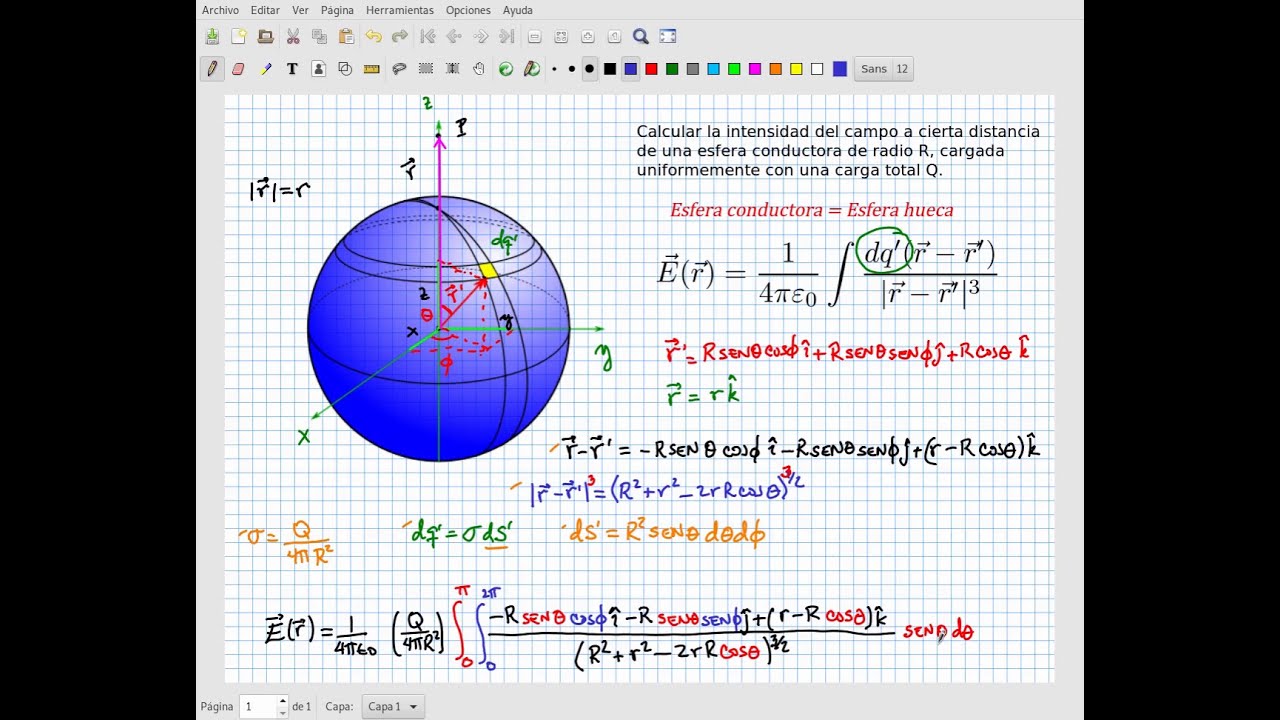 Archivo Editar Ver Página Herramientas Opciones Ayuda
T Sans 12
z
P
r⃗
|r⃗|=r
dq'
z
r⃗'
θ
x
y
ϕ
y
x
Calcular la intensidad del campo a cierta distancia
de una esfera conductora de radio R, cargada
uniformemente con una carga total Q.
Esfera conductora = Esfera hueca
E⃗(r⃗) = 1/4πε₀ ∫ dq'(r⃗ − r⃗')/|r⃗ − r⃗'|³
r⃗' = R SENθ cosϕ î + R SENθ SENϕ ĵ + R cosθ k̂
r⃗ = r k̂
r⃗-r⃗' = -R SENθ cosϕ î - R SENθ SENϕ ĵ + (r-R cosθ) k̂
|r⃗-r⃗'|³ = (R²+r²-2rR cosθ)^3/2
σ = Q/4πR² dq' = σ dS' dS' = R² SENθ dθ dϕ
E⃗(r⃗) = 1/4πε0 (Q/4πR²) ∫₀^π ∫₀^2π -R SENθ cosϕ î - R SENθ SENϕ ĵ + (r-R cosθ) k̂ / (R²+r²-2rR cosθ)^3/2 SENθ dθ
Página 1 de 1 Capa: Capa 1